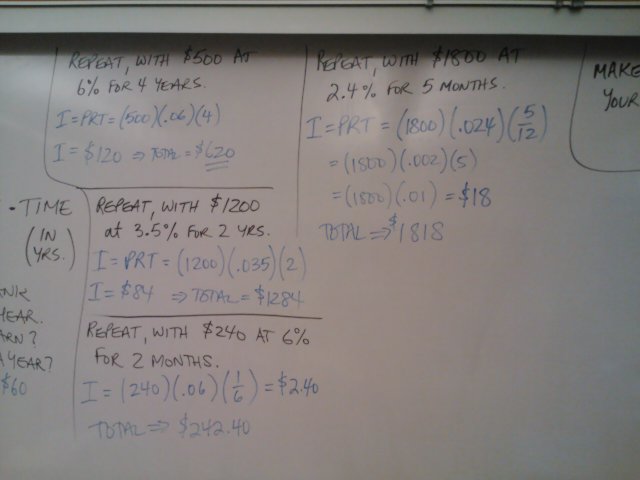 REPEAT, WITH $500 AT
6% FOR 4 YEARS.
I = PRT = (500)(.06)(4)
I = $120 ⇒ TOTAL = $620
• TIME
(IN
YRS.)
YEAR.
YEAR?
$60
REPEAT, WITH $1200
at 3.5% FOR 2 YRS.
I = PRT = (1200)(.035)(2)
I = $84 ⇒ TOTAL = $1284
REPEAT, WITH $240 AT 6%
FOR 2 MONTHS.
I = (240)(.06)(1/6) = $2.40
TOTAL ⇒ $242.40
REPEAT, WITH $1800 AT
2.4% FOR 5 MONTHS.
I = PRT = (1800)(.024)(5/12)
= (1800)(.002)(5)
= (1800)(.01) = $18
TOTAL ⇒ $1818
MAKE
YOUR